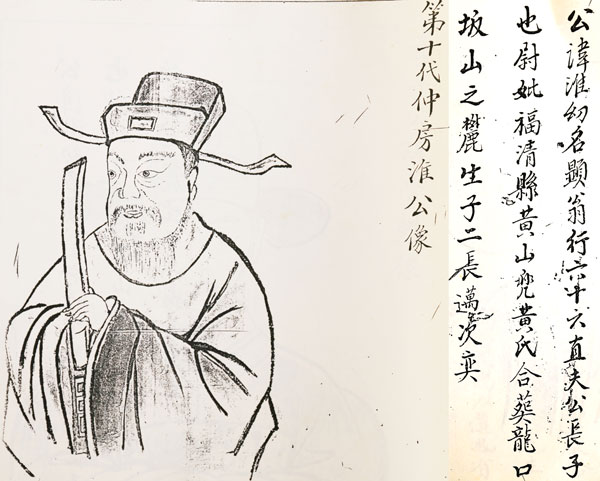 公諱淮幼名顯翁行六十六直夫公長子
也尉妣福清縣黃山兜黃氏合葬龍口
坂山之麓生子二長邁次奕
第十代仲房淮公像